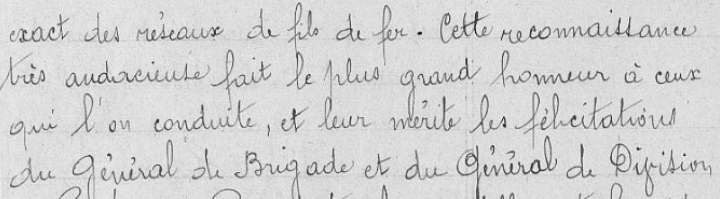 exact des réseaux de fils de fer. Cette reconnaissance
très audacieuse fait le plus grand honneur à ceux
qui l'on conduite, et leur mérite les félicitations
du Général de Brigade et du Général de Division